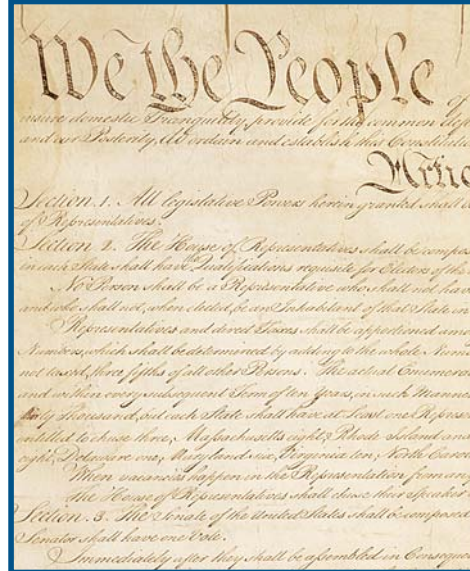 We the People of
insure domestic Tranquility, provide for the common
and our Posterity, do ordain and establish this Constitution
Article
Section. 1. All legislative Powers herein granted shall be
of Representatives.
Section. 2. The House of Representatives shall be composed
in each State shall have the Qualifications requisite for Electors of the
No Person shall be a Representative who shall not have
and who shall not, when elected, be an Inhabitant of that State in
Representatives and direct Taxes shall be apportioned among
Numbers, which shall be determined by adding to the whole Number
not taxed, three fifths of all other Persons. The actual Enumeration
and within every subsequent Term of ten Years, in such Manner
thirty Thousand, but each State shall have at Least one Representative
entitled to chuse three, Massachusetts eight, Rhode Island and
eight, Delaware one, Maryland six, Virginia ten, North Carolina
When vacancies happen in the Representation from any
The House of Representatives shall chuse their Speaker
Section. 3. The Senate of the United States shall be composed
Senator shall have one Vote.
Immediately after they shall be assembled in Consequence